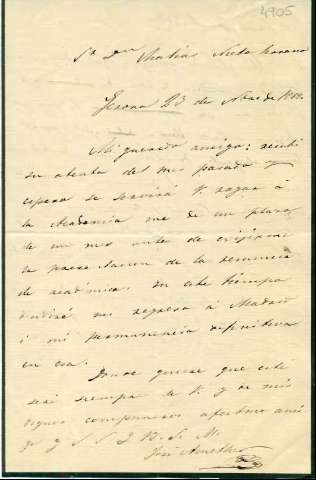 4905
Sr Dn Matias Nieto Serrano
Gerona 23 de de 18
Mi querido amigo: recibi
su atenta del mes pasado y
espero se servirá V. rogar á
la Academia me dé un plazo
de un mes antes de exigirme
la presentacion de la renuncia
de académico. En este tiempo
mi regreso á Madrid
ó mi permanencia definitiva
en esa.
Donde quiera que esté
seré siempre de V. y de mis
dignos compañeros afectmo ami
go q. S. S. Q. B. S. M.
José